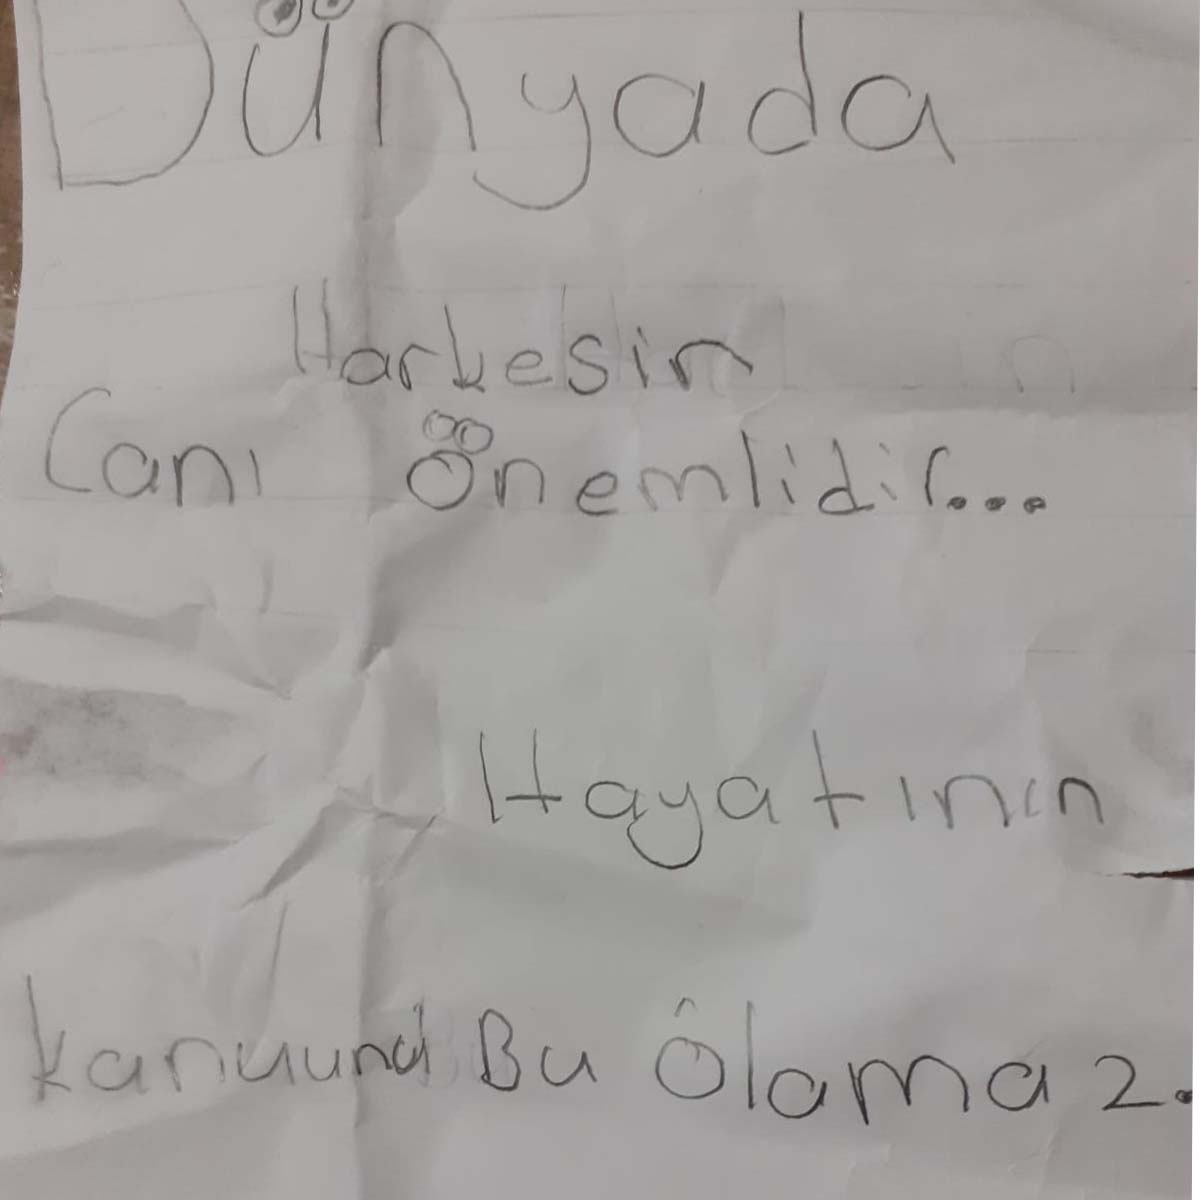 Dünyada
Harkesin
Canı Önemlidir...
Hayatının
Bu Ôlamaz.